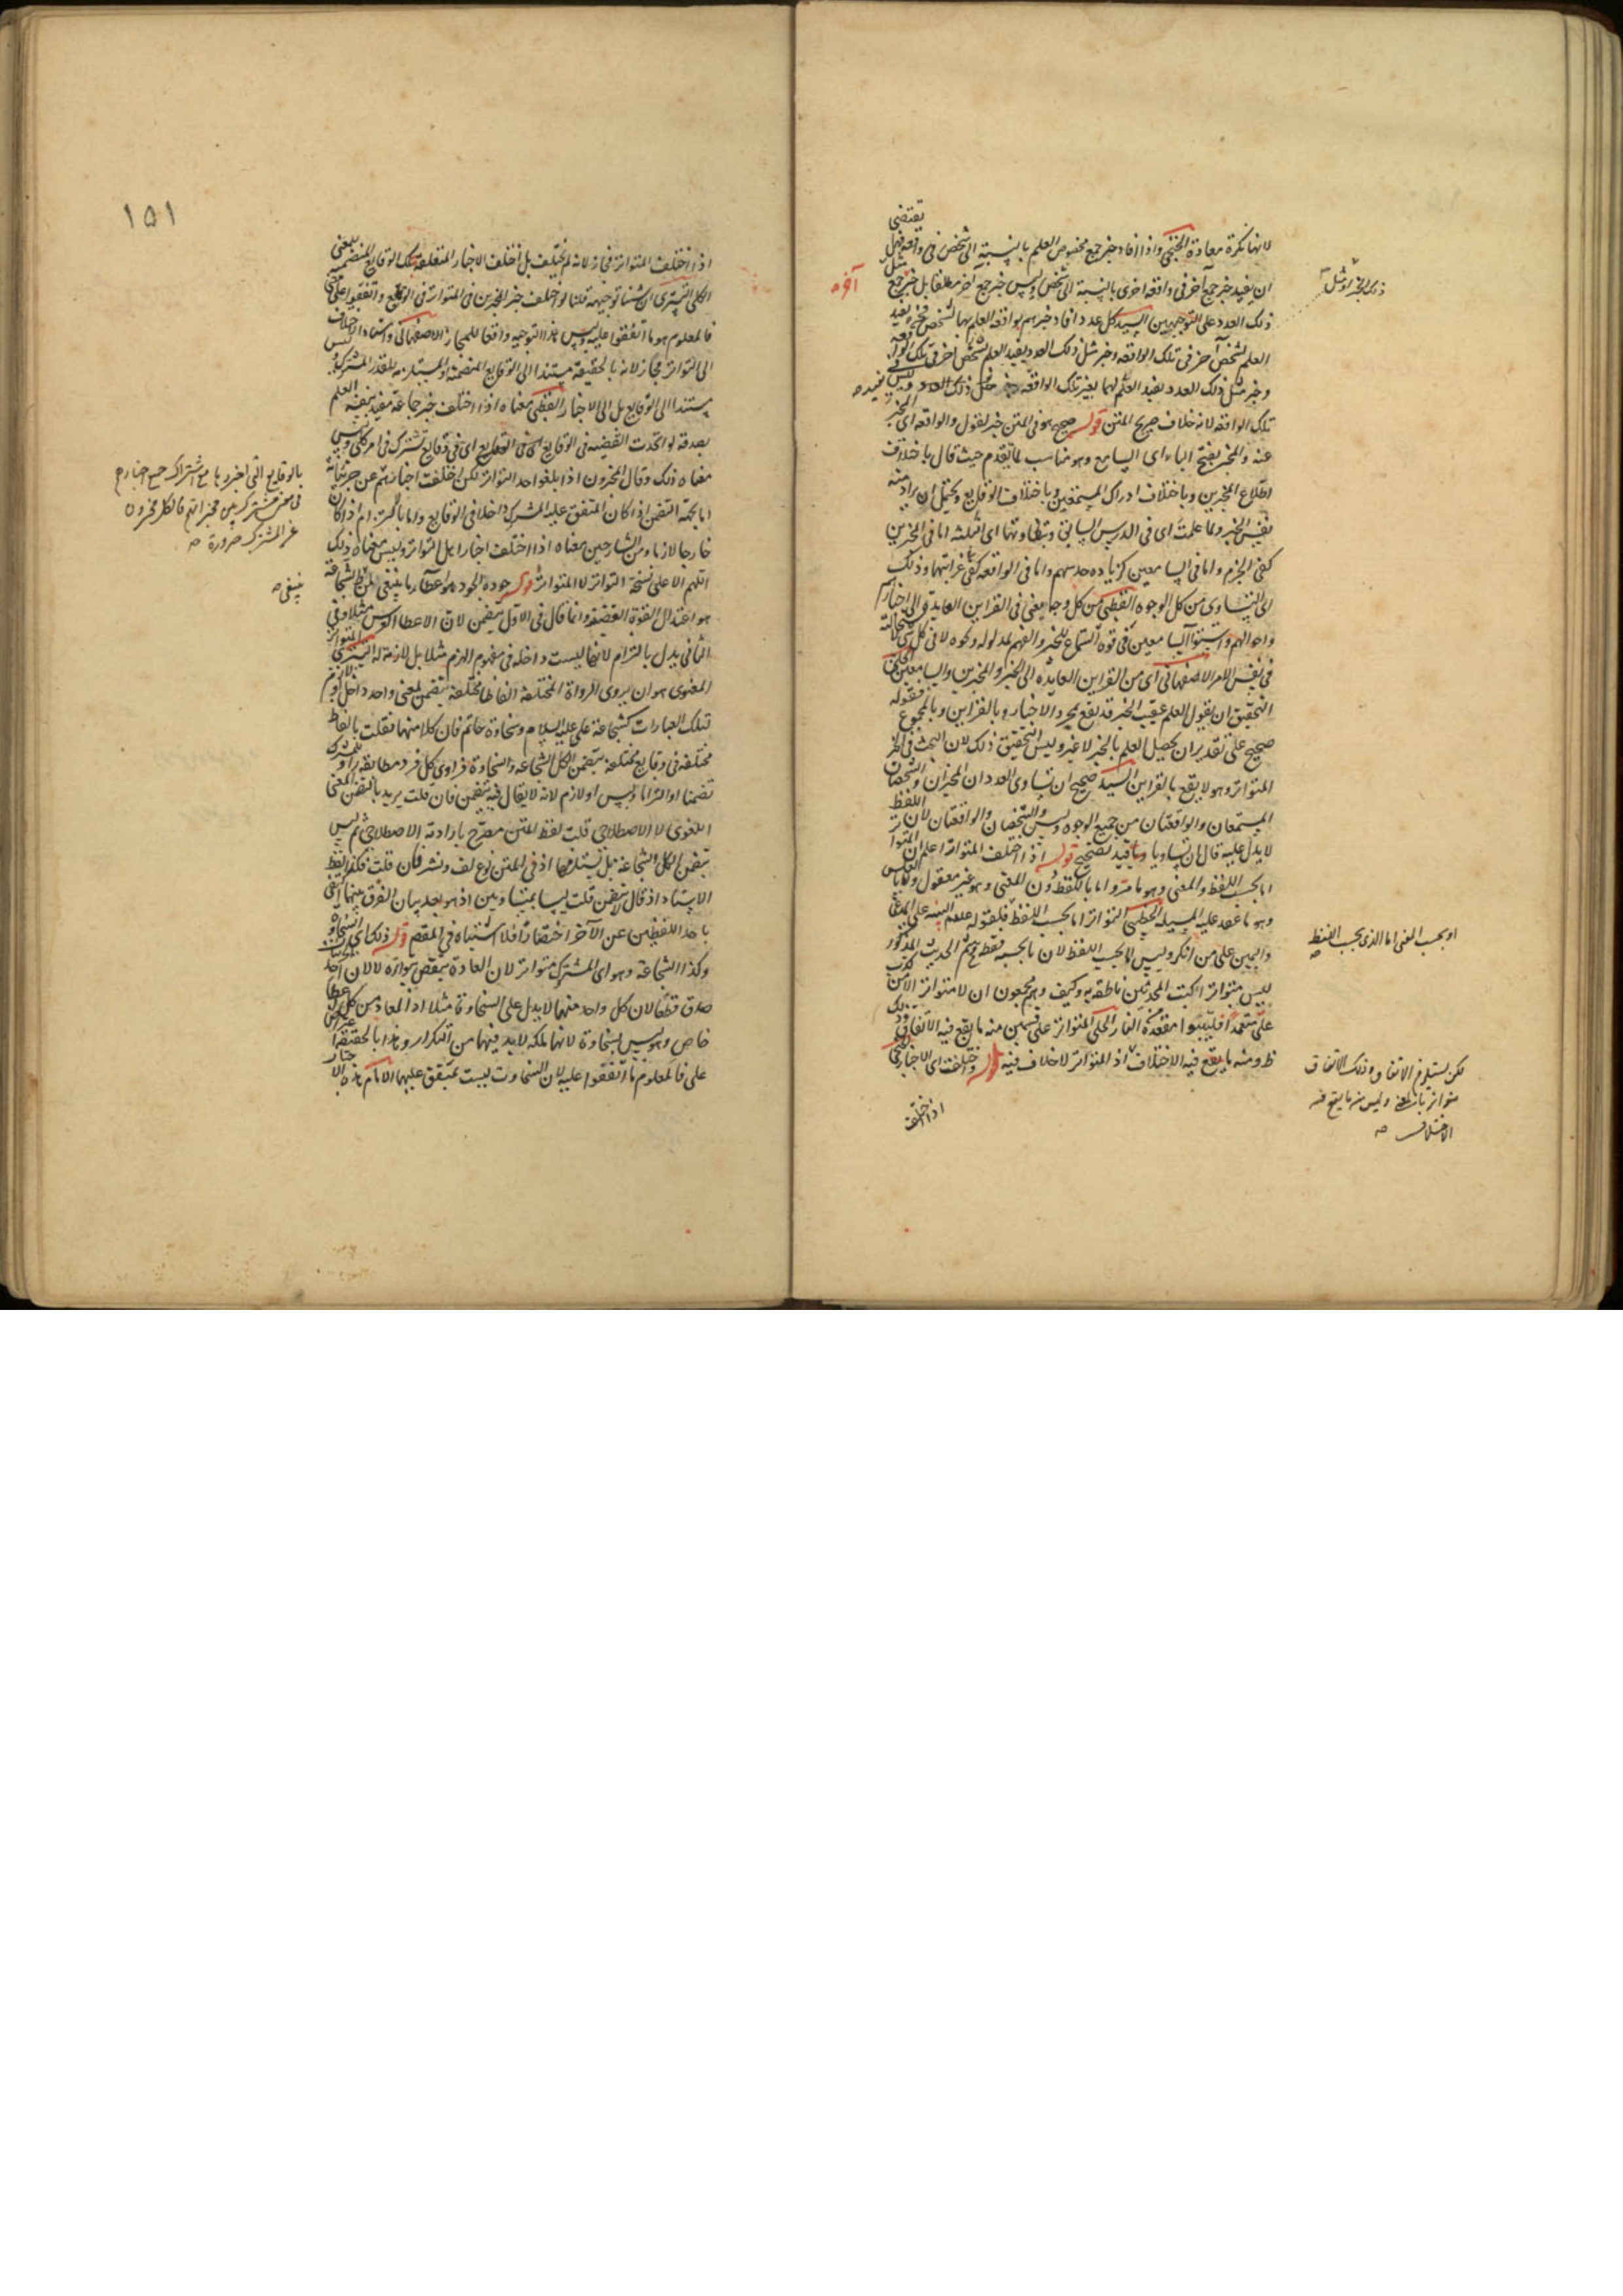 لانها نكرة معادة الخنجي واذا افاد خبر جمع مخصوص العلم بالنسبة الى شخص في واقعة فهل
تقتضي
ان يفيد خبر جمع آخر في واقعة اخرى بالنسبة الى شخص وليس خبر جمع آخر مطلقا بل خبر جمع
ذلك العدد على التوجيهين السيد كل عدد افاد خبرهم بواقعة العلم بها لشخص
العلم لشخص آخر في تلك الواقعة وخبر مثل ذلك العدد يفيد العلم لشخص آخر في تلك
وخبر مثل ذلك العدد يفيد العلم لهما بغير تلك الواقعة
تلك الواقعة لانه خلاف صريح المتن قوله صحيح هو في المتن خبر لقول والواقعة اي المخبر
عنه والمخبر بفتح الباء اي السامع وهو مناسب لما تقدم حيث قال باختلاف
اطلاع المخبرين وباختلاف ادراك المستمعين وباختلاف الوقايع ويحتمل ان يراد منه
نفس الخبر ولما علمت اي في الدرس السابق وتفاوتها اي الثلثة اما في المخبرين
كفى الجزم واما في السامعين كزيادة حدسهم واما في الواقعة كفى غرابتها وذلك
اي التساوي من كل الوجوه القطبي من كل وجه يعني في القراين العايدة الى اخبارهم
واحوالهم واستووا السامعين في قوة السماع للخبر والفهم لمدلوله ونحوه لا في كل شي
في نفس الامر الاصفهاني اي من القراين العايدة الى الخبر والمخبرين والسامعين
التحقيق ان يقول العلم عقيب الخبر قد يقع بمجرد الاخبار وبالقراين وبالمجموع فقوله
صحيح على تقدير ان يحصل العلم بالخبر لا غير وليس التحقيق ذلك لان البحث في الخبر
المتواتر وهو لا يقع بالقراين السيد صحيح ان تساوى العددان المخبران والشخصان
المستمعان والواقعتان من جميع الوجوه وليس والشخصان والواقعتان لان اللفظ
لا يدل عليه قال ان تساويا وما قيد تصحيح قوله اذا اختلف المتواتر اعلم ان المتواتر
اما بحسب اللفظ والمعنى وهو ما مر واما باللفظ دون المعنى وهو غير معقول واما بالعكس
وهو ما عقد عليه المسيلة الخطيبي التواتر اما بحسب اللفظ فلقوله عليه السلام البينة على المدعي
واليمين على من انكر وليس الا بحسب اللفظ لان ما بحسبه فقط ثم الحديث المذكور
ليس متواترا كتب المحدثين ناطقة به وكيف وهم مجمعون ان لا متواتر الا من كذب
علي متعمدا فليتبوا مقعده من النار الحلي المتواتر على قسمين منه ما يقع فيه الاتفاق وذلك
ظ ومنه ما يقع فيه الاختلاف اذ المتواتر لا خلاف فيه قوله واختلف اي الاخبار
اذا اختلف
آخره
او بحسب المعنى اما الذي بحسب اللفظ
لكن يستلزم الاتفاق وذلك الاتفاق
متواتر وليس منه ما يقع فيه
الاختلاف
١٥١
اذا اختلف المتواتر فمجاز لانه لم يختلف بل اختلف الاخبار المتعلقة بتلك الوقايع المتضمنة للمعنى
الكلي التستري ان شئنا توجيهه قلنا لو اختلف خبر المخبرين في المتواتر في الوقايع واتفقوا على
فالمعلوم هو ما اتفقوا عليه وليس هذا التوجيه دافعا للمجاز الاصفهاني واسناد الاختلاف
الى التواتر مجاز لانه بالحقيقة مستند الى الوقايع المتضمنة او المستلزمة للقدر المشترك وليس
مستندا الى الوقايع بل الى الاخبار القطبي معناه اذا اختلف خبر جماعة مفيد بنفسه العلم
بصدقه لو اتحدت القضية في الوقايع اي في وقايع تشترك في امر كلي وليس
معناه ذلك وقال المخبرون اذا بلغوا حد التواتر لكن اختلفت اخبارهم عن جزئياته
اما بجهة التضمن اذا كان المتفق عليه المشترك داخلا في الوقايع واما بالالتزام اذا كان
خارجا لازما ومن الشارحين معناه اذا اختلفت اخبار اهل التواتر وليس معناه ذلك
اللهم الا على نسخة التواتر لا المتواتر قوله جوده الجود هو اعطاء ما ينبغي لمن الشجاعة
هو اعتدال القوة الغضبية وانما قال في الاول يتضمن لان الاعطاء مثلا وفي
الثاني يدل بالتزام لانها ليست داخلة في مفهوم الهزم مثلا بل لازمة له التستري المتواتر
المعنوي هو ان يروي الرواة المختلفة الفاظا مختلفة يتضمن لمعنى واحد داخل او لازم
تلك العبارات كشجاعة علي عليه السلام وسخاوة حاتم فان كلا منهما نقلت بالفاظ
مختلفة في وقايع مختلفة يتضمن الكل الشجاعة والسخاوة فراوي كل فرد مطابقة راو للمشترك
تضمنا او التزاما وليس او لازم لانه لا يقال فيه يتضمن فان قلت يريد بالتضمن المعنى
اللغوي لا الاصطلاحي قلت لفظ المتن مصرح بارادة الاصطلاحي ثم ليس
يتضمن الكل الشجاعة بل يستلزمها اذ في المتن نوع لف ونشر فان قلت فكذا لفظ
الاستاد اذ قال يتضمن قلت ليسا بمتساويين اذ هو بعد بيان الفرق بينهما اكتفى
باحد اللفظين عن الآخر اختصارا فلا اشتباه في المقصد قوله ذلك اي السخاوة
وكذا الشجاعة وهو اي المشترك متواتر لان العادة تقتضي بتواتره لا لان احد
صدق قطعا لان كل واحد منهما لا يدل على السخاوة مثلا اذ المعاد من كل عطاء
خاص وهو ليس بسخاوة لانها ملكة لا بد فيها من التكرار وهذا بالحقيقة اعتراض
على فالمعلوم ما اتفقوا عليه لان السخاوة ليست بمتفق عليها الامام هذه الاخبار
بالوقايع التي اخبروا بها مع اشتراك جميع اخبارهم
في معنى مشترك بين مخبراتهم فالكل مخبرون
عن المشترك ضرورة
ينبغي